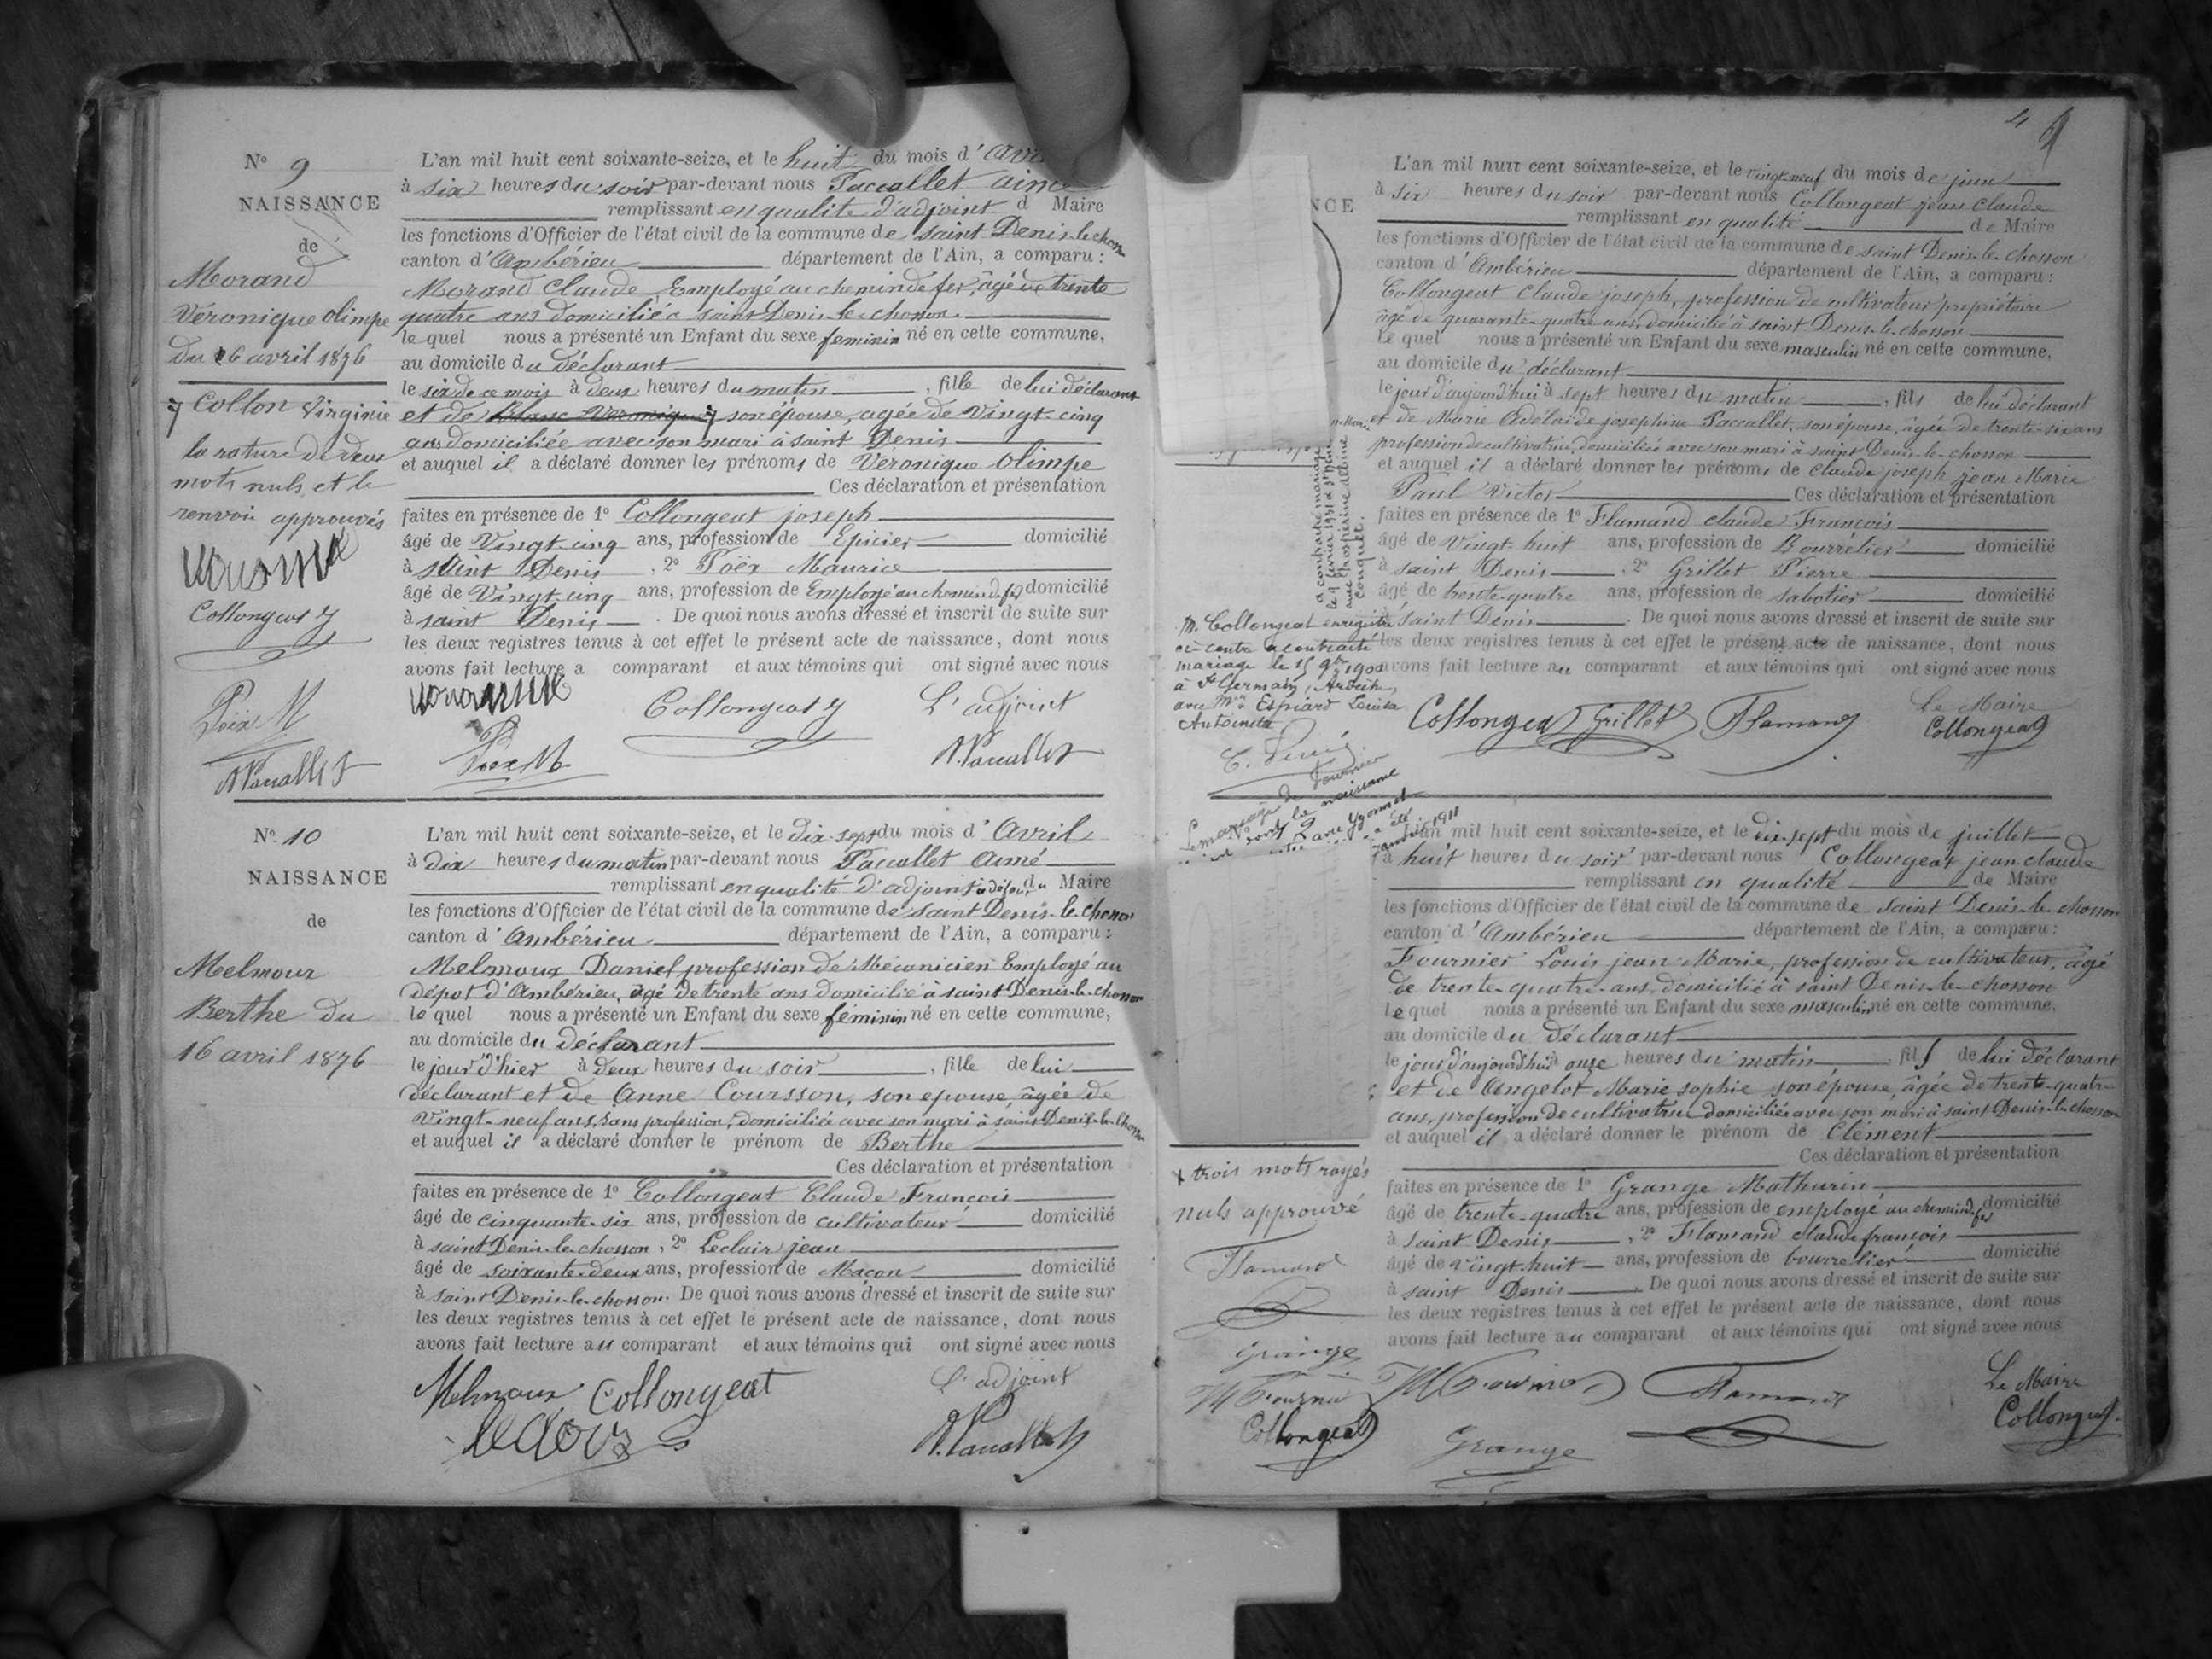 N° 9
NAISSANCE
de
Morand
Véronique olimpe
du 6 avril 1876
Collon Virginie
la rature de deux
mots nuls, et le
renvoi approuvés
Collongeat J
Poëx M
A. Paccallet
L'an mil huit cent soixante-seize, et le huit du mois d'
à six heures du soir par-devant nous Paccallet aimé
remplissant en qualité d'adjoint d Maire
les fonctions d'Officier de l'état civil de la commune de saint Denis-le-chosson
canton d'Ambérieu département de l'Ain, a comparu :
Morand Claude Employé au chemin de fer, âgé de trente
quatre ans domicilié à saint Denis-le-chosson
le quel nous a présenté un Enfant du sexe feminin né en cette commune,
au domicile du déclarant
le six de ce mois à deux heures du matin, fille de lui déclarant
et de Blanc Véronique son épouse, agée de Vingt cinq
ans domiciliée avec son mari à saint Denis
et auquel il a déclaré donner les prénoms de Véronique Olimpe
Ces déclaration et présentation
faites en présence de 1° Collongeat joseph
âgé de Vingt-cinq ans, profession de Epicier domicilié
à saint Denis, 2° Poëx Maurice
âgé de Vingt-cinq ans, profession de Employé au chemin de fer domicilié
à saint Denis. De quoi nous avons dressé et inscrit de suite sur
les deux registres tenus à cet effet le présent acte de naissance, dont nous
avons fait lecture a comparant et aux témoins qui ont signé avec nous
Collongeat J L'adjoint
Poëx M A. Paccallet
N° 10
NAISSANCE
de
Melmoux
Berthe du
16 avril 1876
L'an mil huit cent soixante-seize, et le dix-sept du mois d'Avril
à dix heures du matin par-devant nous Paccallet Aimé
remplissant en qualité d'adjoint à défaut du Maire
les fonctions d'Officier de l'état civil de la commune de saint Denis-le-chosson
canton d'Ambérieu département de l'Ain, a comparu :
Melmoux Daniel profession de Mécanicien Employé au
dépot d'Ambérieu, âgé de trente ans domicilié à saint Denis-le-chosson
le quel nous a présenté un Enfant du sexe feminin né en cette commune,
au domicile du déclarant
le jour d'hier à deux heures du soir, fille de lui
déclarant et de Anne Coursson, son epouse, âgée de
Vingt-neuf ans, sans profession, domiciliée avec son mari à saint Denis-le-chosson
et auquel il a déclaré donner le prénom de Berthe
Ces déclaration et présentation
faites en présence de 1° Collongeat Claude François
âgé de cinquante-six ans, profession de cultivateur domicilié
à saint Denis-le-chosson, 2° Leclair jean
âgé de soixante-deux ans, profession de Maçon domicilié
à saint Denis-le-chosson. De quoi nous avons dressé et inscrit de suite sur
les deux registres tenus à cet effet le présent acte de naissance, dont nous
avons fait lecture au comparant et aux témoins qui ont signé avec nous
Melmoux Collongeat L'adjoint
A. Paccallet
4
NCE
a contracté mariage
le 9 1931 à
avec
Conquet.
M. Collongeat enregistré
ci-contre a contracté
mariage le 15 9bre 1900
à St Germain, Ardèche,
avec Mlle Espiard Louise
Antoinette
L'an mil huit cent soixante-seize, et le vingt-neuf du mois de juin
à six heures du soir par-devant nous Collongeat jean claude
remplissant en qualité de Maire
les fonctions d'Officier de l'état civil de la commune de saint Denis-le-chosson
canton d'Ambérieu département de l'Ain, a comparu :
Collongeat claude joseph, profession de cultivateur propriétaire
âgé de quarante-quatre ans, domicilié à saint Denis-le-chosson
le quel nous a présenté un Enfant du sexe masculin né en cette commune,
au domicile du déclarant
le jour d'aujourd'hui à sept heures du matin, fils de lui déclarant
et de Marie Adélaïde josephine Paccallet, son épouse, âgée de trente-six ans
profession de cultivatrice, domiciliée avec son mari à saint Denis-le-chosson
et auquel il a déclaré donner les prénoms de claude joseph jean Marie
Paul Victor Ces déclaration et présentation
faites en présence de 1° Flamand claude François
âgé de Vingt huit ans, profession de Bourrelier domicilié
à saint Denis, 2° Grillet Pierre
âgé de trente-quatre ans, profession de sabotier domicilié
à saint Denis. De quoi nous avons dressé et inscrit de suite sur
les deux registres tenus à cet effet le présent acte de naissance, dont nous
avons fait lecture au comparant et aux témoins qui ont signé avec nous
Collongeat Grillet Flamand Le Maire
Collongeat
Le mariage de Fournier
dont la naissance
janvier 1911
trois mots rayés
nuls approuvé
Flamand
Grange
Fournier
Collongeat
L'an mil huit cent soixante-seize, et le dix-sept du mois de juillet
à huit heures du soir par-devant nous Collongeat jean claude
remplissant en qualité de Maire
les fonctions d'Officier de l'état civil de la commune de saint Denis-le-chosson
canton d'Ambérieu département de l'Ain, a comparu :
Fournier Louis jean Marie, profession de cultivateur, âgé
de trente-quatre-ans, domicilié à saint Denis-le-chosson
le quel nous a présenté un Enfant du sexe masculin né en cette commune,
au domicile du déclarant
le jour d'aujourd'hui à onze heures du matin, fils de lui déclarant
et de Angelot Marie sophie son épouse, âgée de trente-quatre
ans, profession de cultivatrice domiciliée avec son mari à saint Denis-le-chosson
et auquel il a déclaré donner le prénom de Clément
Ces déclaration et présentation
faites en présence de 1° Grange Mathurin
âgé de trente-quatre ans, profession de employé au chemin de fer domicilié
à saint Denis, 2° Flamand claude françois
âgé de vingt-huit ans, profession de bourrelier domicilié
à saint Denis. De quoi nous avons dressé et inscrit de suite sur
les deux registres tenus à cet effet le présent acte de naissance, dont nous
avons fait lecture au comparant et aux témoins qui ont signé avec nous
Fournier Flamand Le Maire
Grange Collongeat